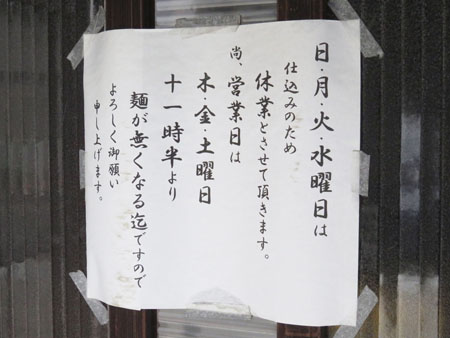 日・月・火・水曜日は
仕込みのため
休業とさせて頂きます。
尚、営業日は
木・金・土曜日
十一時半より
麺が無くなる迄ですので
よろしく御願い
申し上げます。